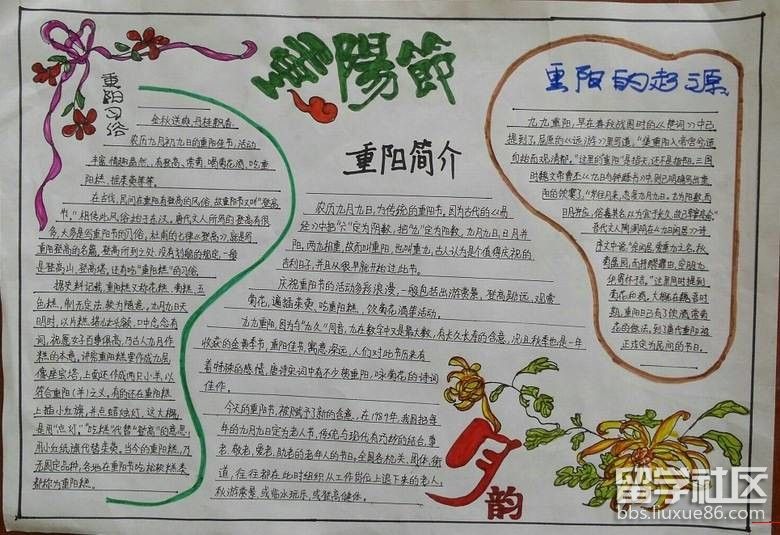 重陽節
重阳习俗
金秋送爽,丹桂飘香
农历九月初九日的重阳佳节,活动
丰富,情趣盎然,有登高、赏菊、喝菊花酒、吃重
阳糕、插茱萸等等。
在古代,民间在重阳有登高的风俗,故重阳节又叫“登高
节”。相传此风俗始于东汉。唐代文人所写的登高诗很
多,大多是写重阳节的习俗;杜甫的七律《登高》,就是写
重阳登高的名篇。登高所到之处,没有划一的规定,一般
是登高山、登高塔。还有吃“重阳糕”的习俗。
据史料记载,重阳糕又称花糕、菊糕、五
色糕,制无定法,较为随意。九月九日天
明时,以片糕搭儿女头额,口中念念有
词,祝愿子女百事俱高,乃古人九月作
糕的本意。讲究重阳糕要作成九层,
像座宝塔,上面还作成两只小羊,以
符合重阳(羊)之义。有的还在重阳糕
上插小红旗,并点蜡烛灯。这大概
是用“点灯”、“吃糕”代替“登高”的意思,
用小红纸旗代替茱萸。当今的重阳糕,乃
无固定品种,各地在重阳节吃松软糕类
都称为重阳糕。
重阳简介
农历九月九日,为传统的重阳节。因为古代的《易
经》中把“六”定为阴数,把“九”定为阳数,九月九日,日月并
阳,两九相重,故而叫重阳,也叫重九,古人认为是个值得庆祝的
吉利日子,并且从很早就开始过此节。
庆祝重阳节的活动多彩浪漫,一般包括出游赏景、登高眺远、观赏
菊花、遍插茱萸、吃重阳糕、饮菊花酒等活动。
九九重阳,因为与“久久”同音,九在数字中又是最大数,有长久长寿的含意,况且秋季也是一年
收获的金黄季节,重阳佳节,寓意深远,人们对此节历来有
着特殊的感情,唐诗宋词中有不少贺重阳,咏菊花的诗词
佳作。
今天的重阳节,被赋予了新的含意,在1989年,我国把每
年的九月九日定为老人节,传统与现代巧妙的结合,成为尊
老、敬老、爱老、助老的老年人的节日。全国各机关、团体、街
道,往往都在此时组织从工作岗位上退下来的老人,
秋游赏景,或临水玩乐,或登高健体。
重阳的起源
九九重阳,早在春秋战国时的《楚词》中已
提到了。屈原的《远游》里写道:“集重阳入帝宫兮,造
旬始而观清都”。这里的“重阳”是指天,还不是指节日。三国
时魏文帝曹丕《九日与钟繇书》中,则已明确写出重
阳的饮宴了:“岁往月来,忽复九月九日。九为阳数,而
日月并应,俗嘉其名,以为宜于长久,故以享宴高会。”
晋代文人陶渊明在《九日闲居》诗
序文中说:“余闲居,爱重九之名。秋
菊盈园,而持醪靡由,空服九
华,寄怀于言”。这里同时提到
菊花和酒。大概在魏晋时
期,重阳日已有了饮酒、赏菊
花的做法。到了唐代重阳被
正式定为民间的节日。
月韵
留学社区
bbs.liuxue86.com